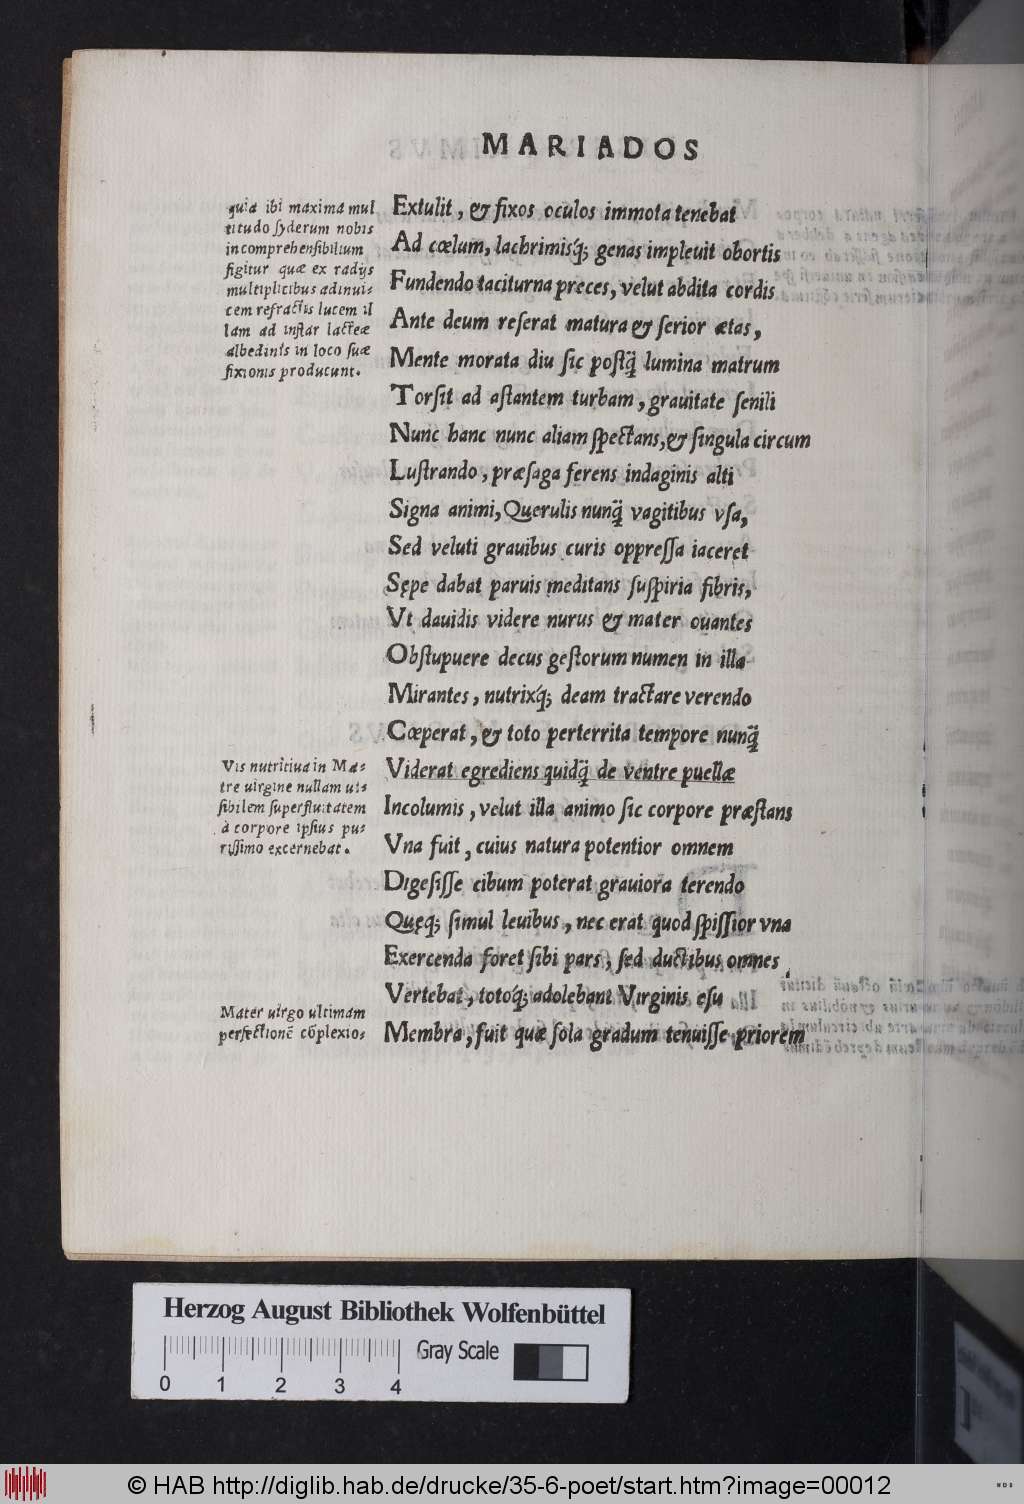 MARIADOS
quia ibi maxima mul
titudo ſyderum nobis
incomprehenſibilium
figitur quæ ex radijs
multiplicibus adinui-
cem refractis lucem il
lam ad inſtar lacteæ
albedinis in loco ſuæ
fixionis producunt.
Extulit, & fixos oculos immota tenebat
Ad cœlum, lachrimisq́; genas impleuit obortis
Fundendo taciturna preces, velut abdita cordis
Ante deum referat matura & ſerior ætas,
Mente morata diu ſic poſtq̃ lumina matrum
Torſit ad aſtantem turbam, grauitate ſenili
Nunc hanc nunc aliam ſpectans, & ſingula circum
Luſtrando, præſaga ferens indaginis alti
Signa animi, Querulis nunq̃ vagitibus vſa,
Sed veluti grauibus curis oppreſſa iaceret
Sępe dabat paruis meditans ſuſpiria fibris,
Vt dauidis videre nurus & mater ouantes
Obſtupuere decus geſtorum numen in illa
Mirantes, nutrixq́; deam tractare verendo
Cœperat, & toto perterrita tempore nunq̃
Vis nutritiua in Ma-
tre uirgine nullam ui-
ſibilem ſuperfluitatem
à corpore ipſius pu-
riſſimo excernebat.
Viderat egrediens quidq̃ de ventre puellæ
Incolumis, velut illa animo ſic corpore præſtans
Vna fuit, cuius natura potentior omnem
Digeſiſſe cibum poterat grauiora terendo
Quęq; ſimul leuibus, nec erat quod ſpiſſior vna
Exercenda foret ſibi pars, ſed ductibus omnes
Vertebat, totoq́; adolebant Virginis eſu
Mater uirgo ultimam
perfectionē cõplexio-
Membra, fuit quæ ſola gradum tenuiſſe priorem
Herzog August Bibliothek Wolfenbüttel
Gray Scale
0 1 2 3 4
© HAB http://diglib.hab.de/drucke/35-6-poet/start.htm?image=00012